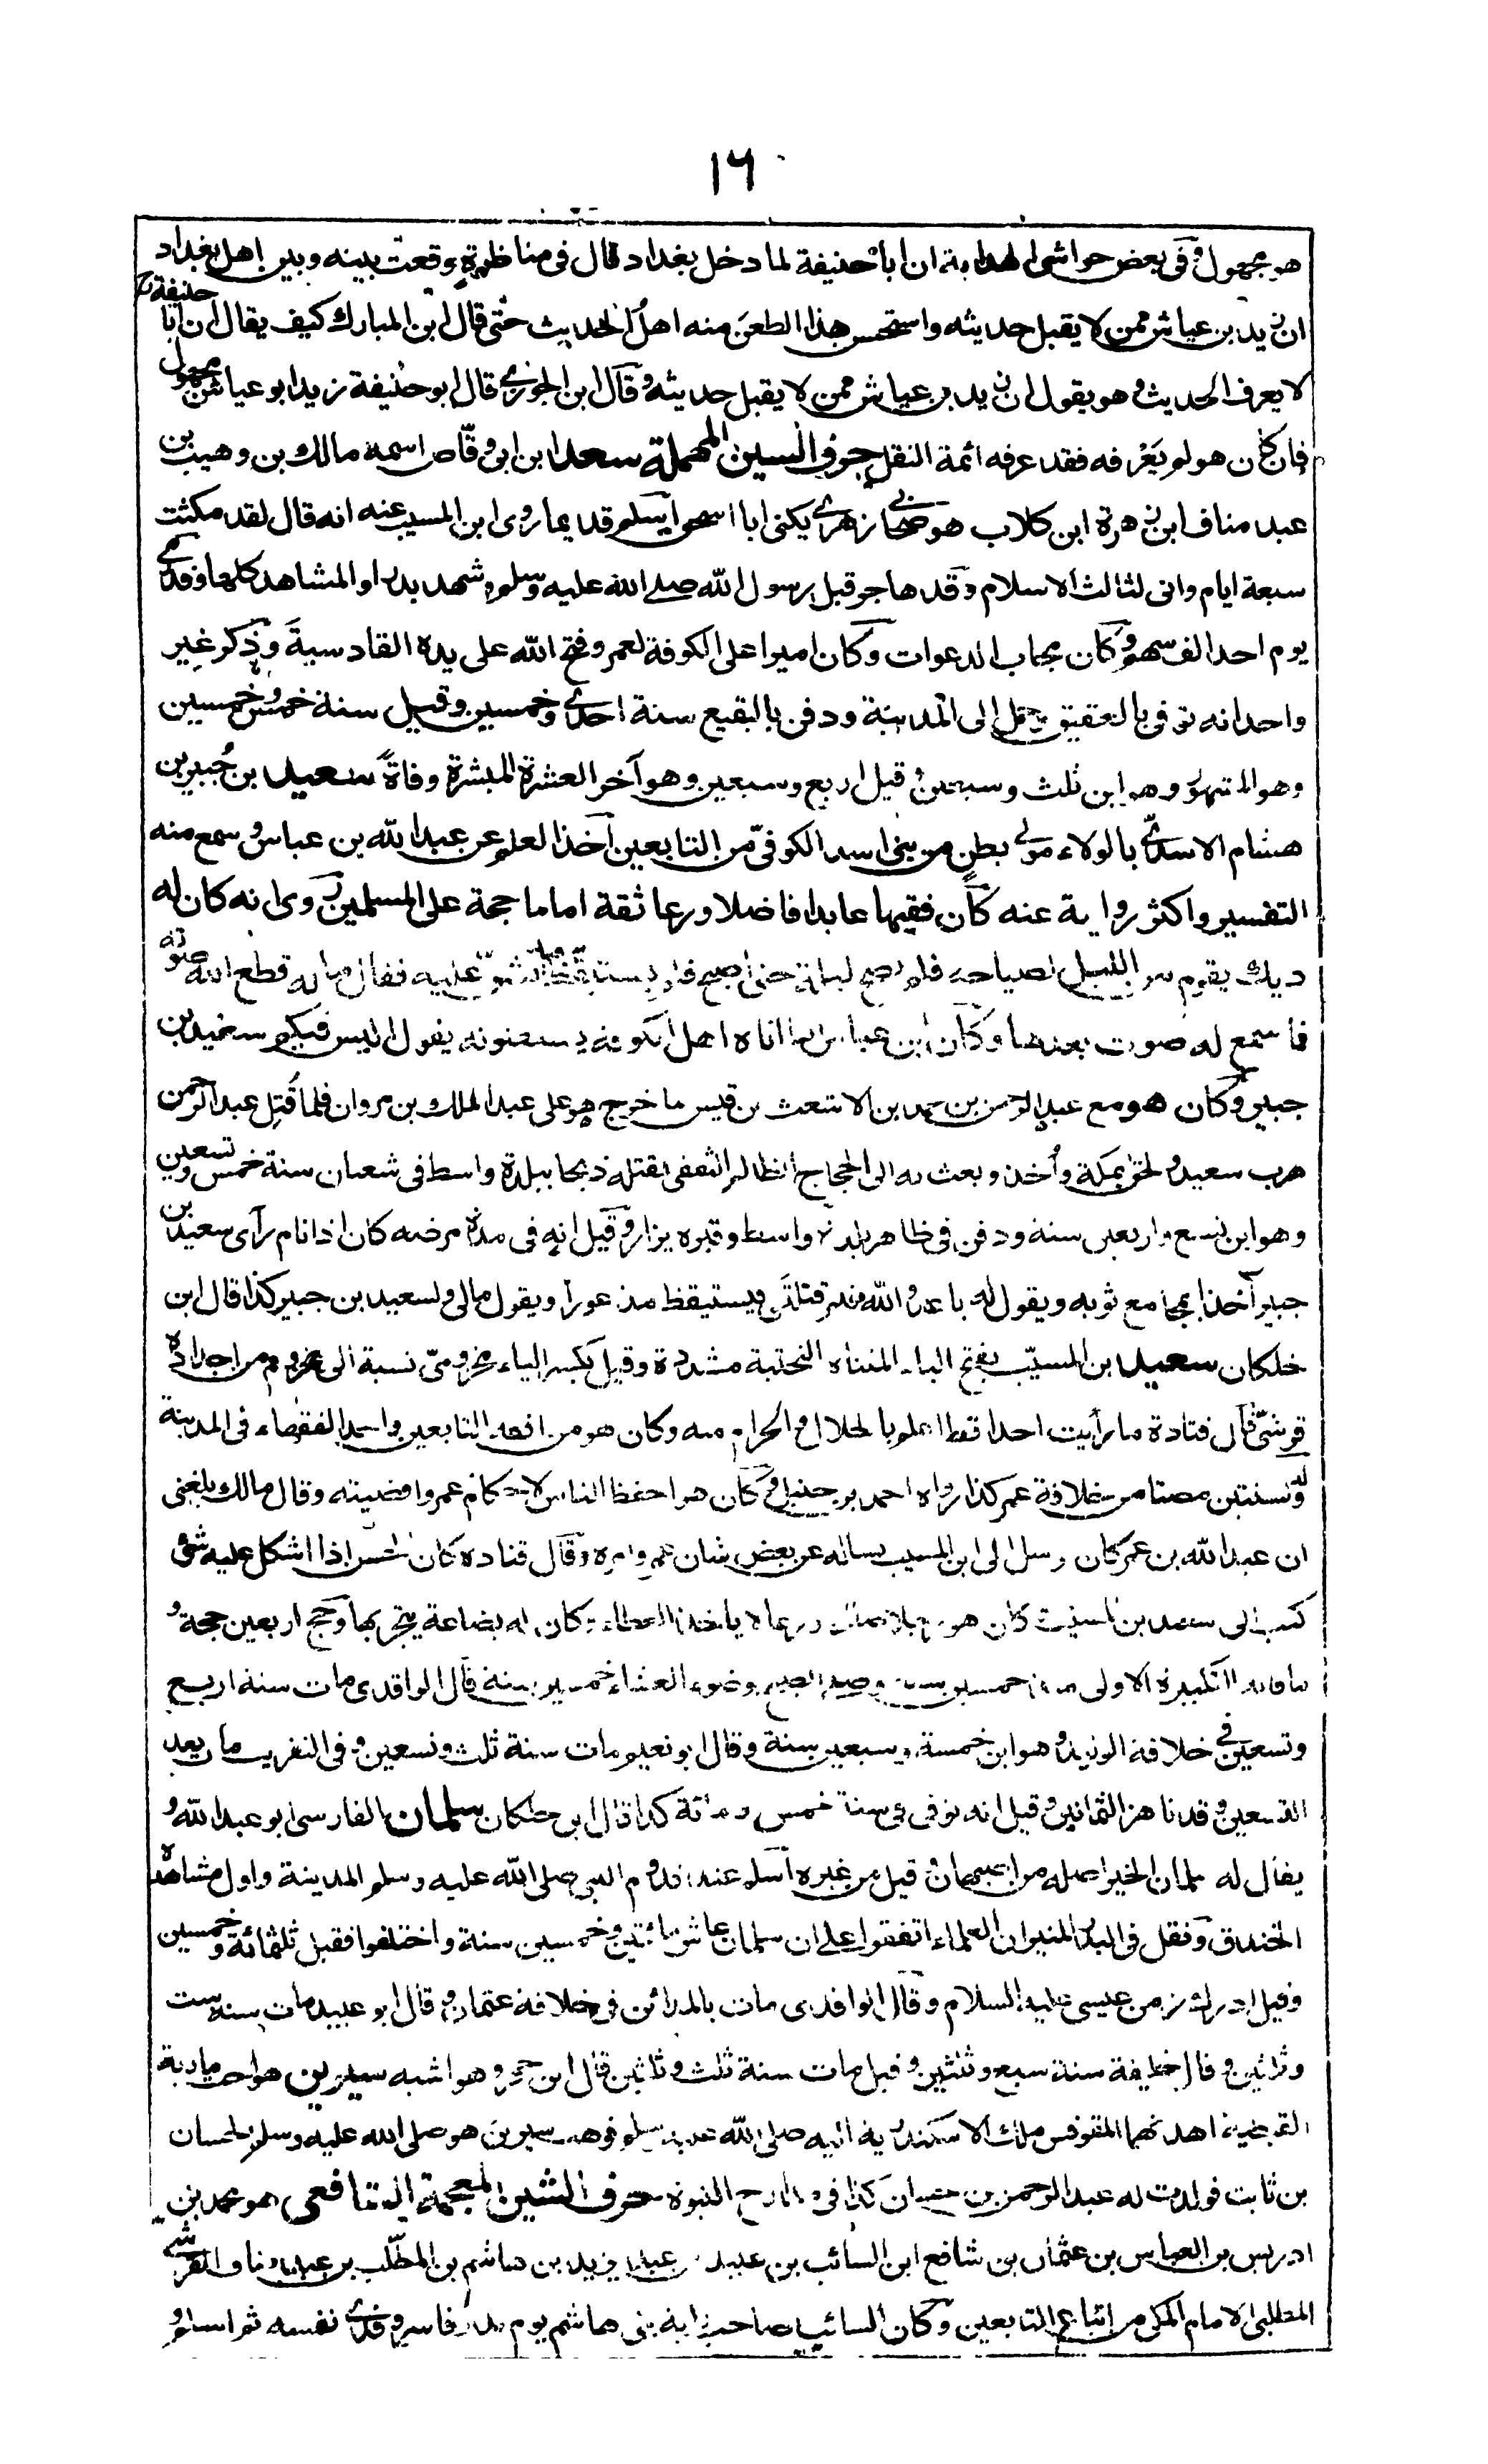 ١٦
هو مجهول وفى بعض حواشى الهداية ان اباحنيفة لما دخل بغداد قال فى مناظرة وقعت بينه وبين اهل بغداد
ان زيد بن عياش ممن لا يقبل حديثه واستحسن هذا الطعن منه اهل الحديث حتى قال ابن المبارك كيف يقال ان ابا حنيفة
لا يعرف الحديث وهو يقول ان زيد بن عياش ممن لا يقبل حديثه وقال ابن الجوزى قال ابو حنيفة زيد ابو عياش مجهول
فان كان هو لم يعرفه فقد عرفه ائمة النقل حرف السين المهملة سعد ابن ابى وقّاص اسمه مالك بن وهيب بن
عبد مناف ابن زهرة ابن كلاب هو صحابى زهرى يكنى ابا اسحق اسلم قديما روى ابن المسيب عنه انه قال لقد مكثت
سبعة ايام وانى لثالث الاسلام وقد هاجر قبل رسول الله صلى الله عليه وسلم وشهد بدرا والمشاهد كلها وقد رمى
يوم احد الف سهم وكان مجاب الدعوات وكان اميرا على الكوفة لعمر وفتح الله على يده القادسية وذكر غير
واحد انه توفى بالعقيق وحمل الى المدينة ودفن بالبقيع سنة احدى وخمسين وقيل سنة خمس وخمسين
وهو المشهور وهو ابن ثلث وسبعين وقيل اربع وسبعين وهو آخر العشرة المبشرة وفاةً سعيد بن جُبير بن
هشام الاسدىّ بالولاء مولى بطن من بنى اسد الكوفىّ من التابعين آخذ العلم عن عبد الله بن عباس وسمع منه
التفسير واكثر رواية عنه كان فقيها عابدا فاضلا ورعا ثقة اماما حجة على المسلمين روى انه كان له
ديك يقوم من الليل لصياحه فلم يصح ليلة حتى اصبح فلم يستيقظ فشق عليه فقال ماله قطع الله صوته
فما سمع له صوت بعدها وكان ابن عباس اذا اتاه اهل الكوفة يستفتونه يقول اليس فيكم سعيد بن
جبير وكان هو مع عبد الرحمن بن محمد بن الاشعث بن قيس ما خرج هو على عبد الملك بن مروان فلما قُتِل عبد الرحمن
هرب سعيد ولحق بمكة وأُخذ وبعث به الى الحجاج الظالم الثقفى بقتله ذبحا ببلدة واسط فى شعبان سنة خمس وتسعين
وهو ابن تسع واربعين سنة ودفن فى ظاهر بلدة واسط وقبره يزار وقيل انه فى مدة مرضه كان اذا نام رآى سعيد بن
جبير آخذا بمجامع ثوبه ويقول له يا عدو الله فيم قتلتنى فيستيقظ مذعورا ويقول مالى ولسعيد بن جبير كذا قال ابن
خلكان سعيد بن المسيّب بفتح الياء المثناة التحتية مشددة وقيل بكسر الياء مخزومىّ نسبة الى مخزوم من اجداده
قرشىّ قال قتادة ما رأيت احدا قط اعلم بالحلال والحرام منه وكان هو من افقه التابعين واحد الفقهاء فى المدينة
ولد لسنتين مضتا من خلافة عمر كذا رواه احمد بن حنبل وكان هو احفظ الناس لاحكام عمر واقضيته وقال مالك بلغنى
ان عبد الله بن عمر كان يرسل الى ابن المسيب يسأله عن بعض شان عمر وامره وقال قتادة كان الحسن اذا اشكل عليه شئ
كتب الى سعيد بن المسيب كان هو لا ياخذ العطاء وكان له بضاعة يتجر بها وحج اربعين حجة و
ما فاته التكبيرة الاولى منذ خمسين سنة وصلى الصبح بوضوء العشاء خمسين سنة قال الواقدى مات سنة اربع
وتسعين فى خلافة الوليد وهو ابن خمسة وسبعين سنة وقال ابو نعيم مات سنة ثلث وتسعين وفى التقريب مات بعد
التسعين وقد ناهز الثمانين وقيل انه توفى فى سنة خمس ومائة كذا قال ابن خلكان سلمان الفارسى ابو عبد الله و
يقال له سلمان الخير اصله من اصبهان وقيل من غيره اسلم عند قدوم النبى صلى الله عليه وسلم المدينة واول مشاهده
الخندق ونقل فى البدر المنير ان العلماء اتفقوا على ان سلمان عاش مائتين وخمسين سنة واختلفوا فقيل ثلثمائة وخمسين
وقيل ادرك زمن عيسى عليه السلام وقال الواقدى مات بالمدائن فى خلافة عثمان وقال ابو عبيد مات سنة ست
وثلثين وقال خليفة سنة سبع وثلثين وقيل مات سنة ثلث وثلثين قال ابن حجر وهو اشبه سيرين هو احد مارية
القبطية اهدتهما المقوقس ملك الاسكندرية اليه صلى الله عليه وسلم فوهب سيرين هو صلى الله عليه وسلم لحسان
بن ثابت فولدت له عبد الرحمن بن حسان كذا فى مدارج النبوة حرف الشين المعجمة الشافعى هو محمد بن
ادريس بن العباس بن عثمان بن شافع ابن السائب بن عبيد بن عبد يزيد بن هاشم بن المطّلب بن عبد مناف القرشى
المطلبى الامام المكى من اتباع التابعين وكان السائب صاحب راية بنى هاشم يوم بدر فاسر وفدى نفسه ثم اسلم و